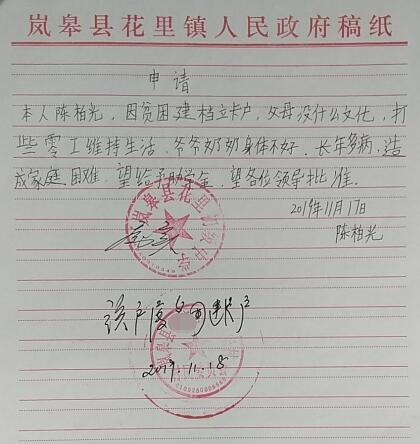 岚皋县花里镇人民政府稿纸
申请
本人陈柏光，因贫困建档立卡户，父母没什么文化，打
些零工维持生活，爷爷奶奶身体不好，长年多病，造
成家庭困难，望给予助学金，望各位领导批准。
2019年11月17日
陈柏光
岚皋县花里初级中学
该户属
建卡户
岚皋县花里
2019.11.18